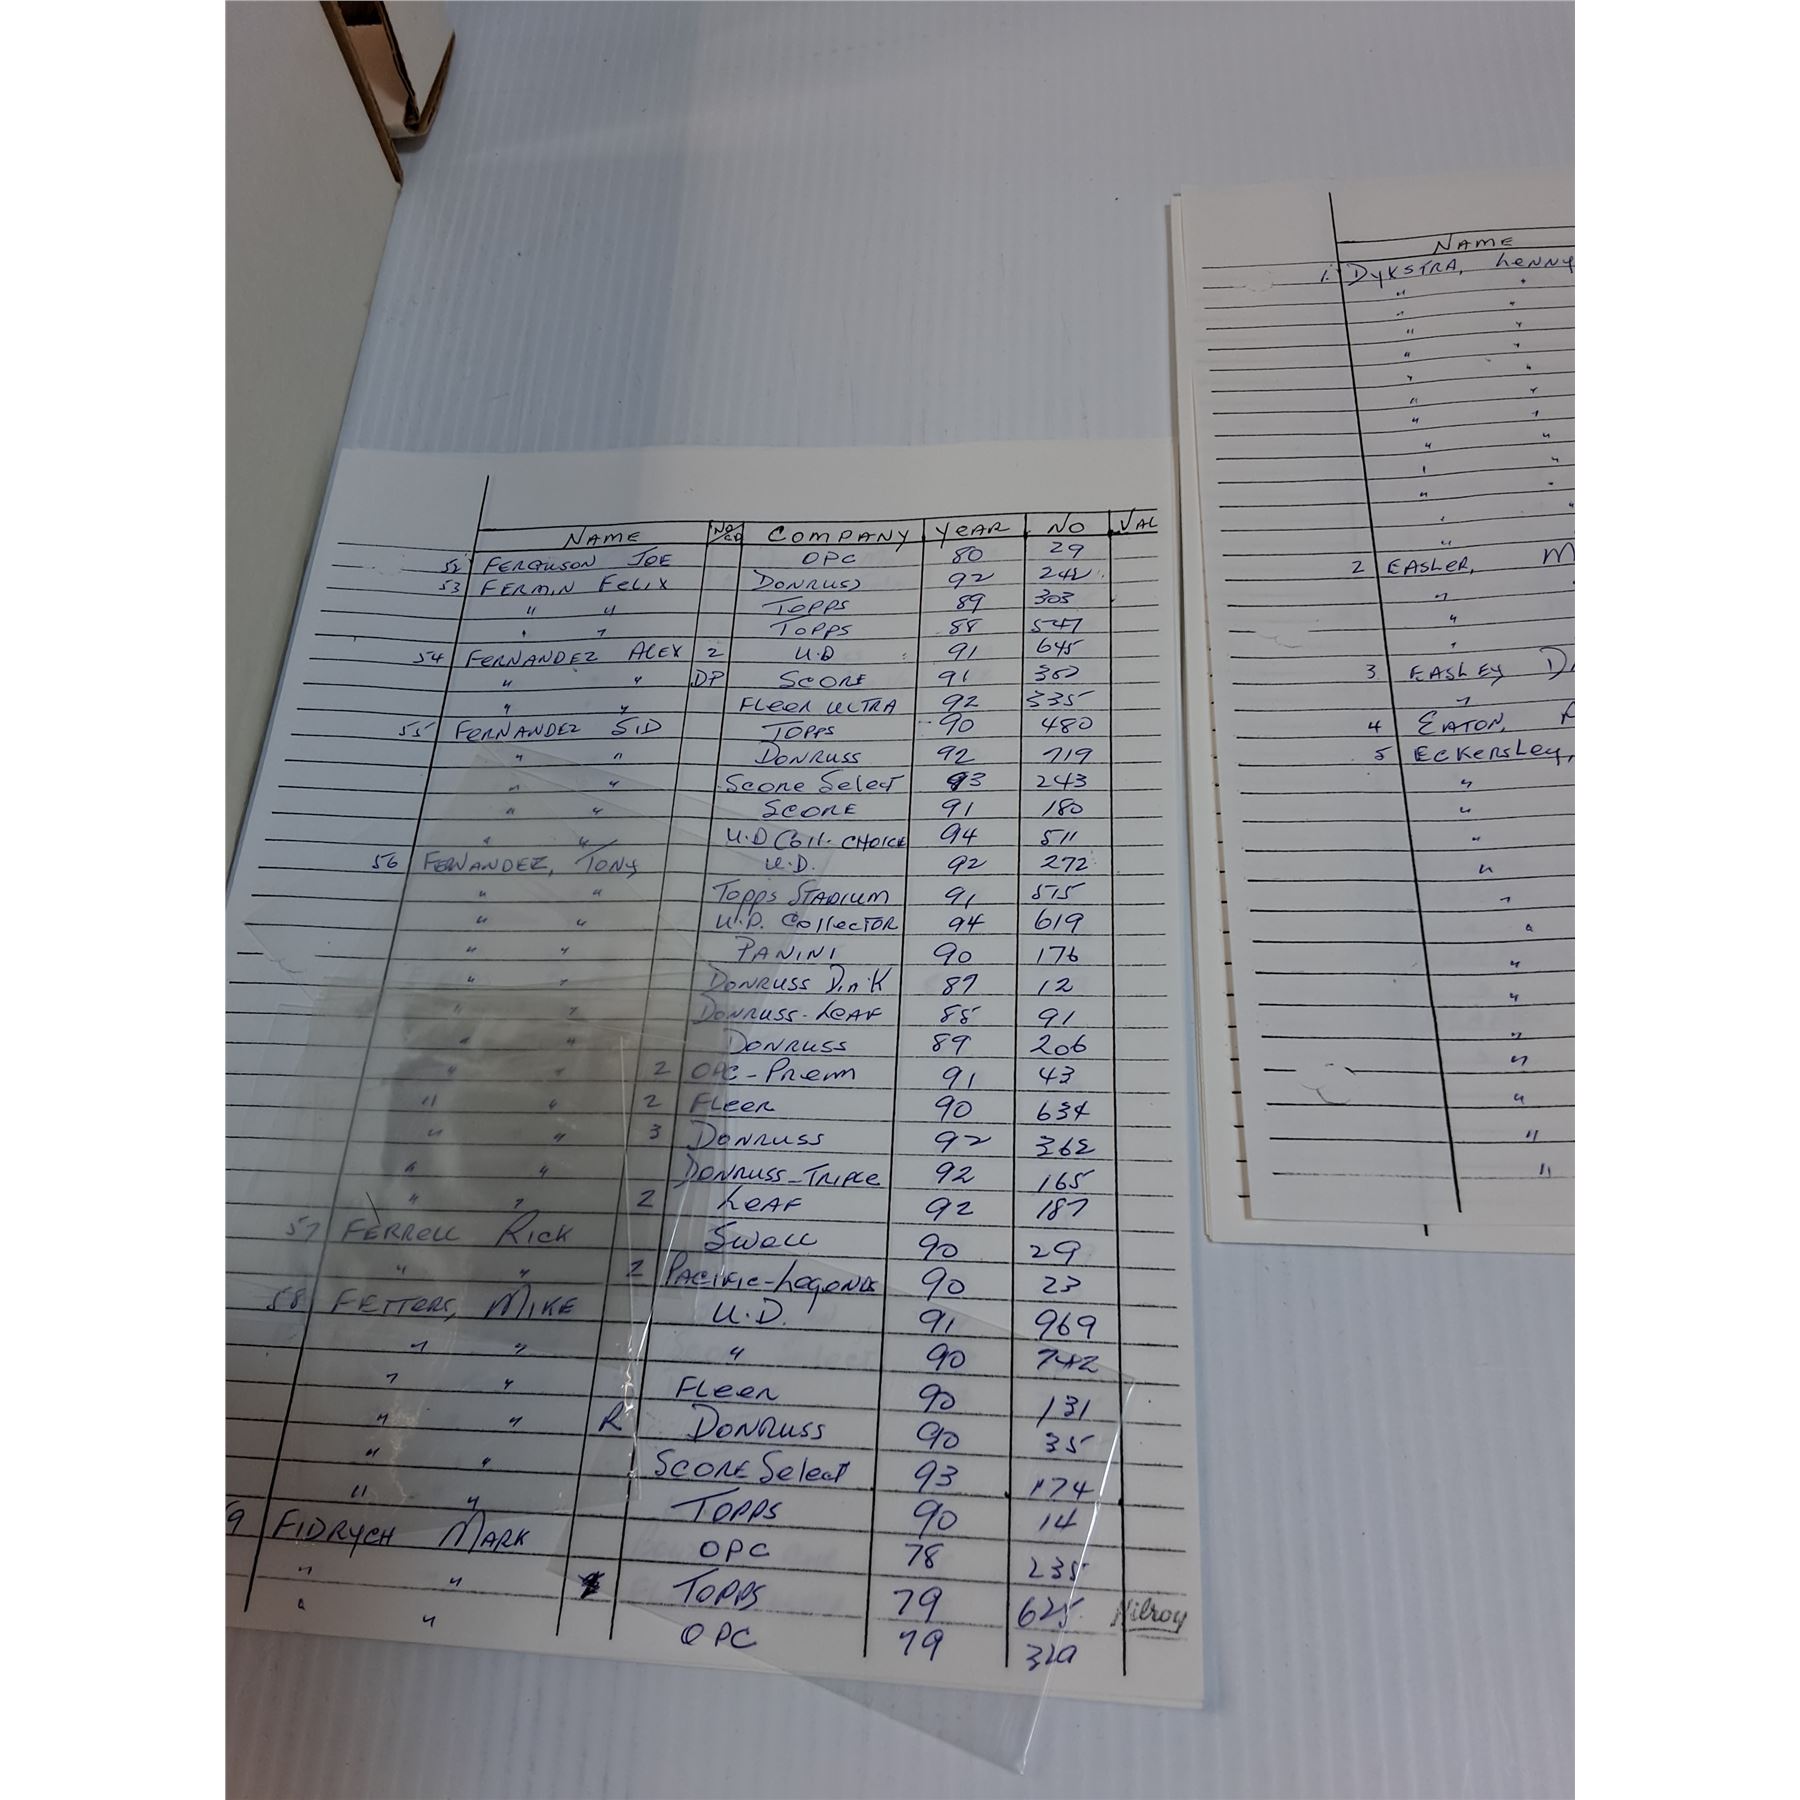 NAME NO/CD COMPANY YEAR NO VAL
52 FERGUSON JOE OPC 80 29
53 FERMIN FELIX DONRUSS 92 242
" " TOPPS 89 303
" " TOPPS 88 547
54 FERNANDEZ ALEX 2 U.D 91 645
" " DP SCORE 91
" " FLEER ULTRA 92 335
55 FERNANDEZ SID TOPPS 90 480
" " DONRUSS 92 719
" " SCORE SELECT 93 243
" " SCORE 91 180
" " U.D COLL. CHOICE 94 511
56 FERNANDEZ, TONY U.D. 92 272
" " TOPPS STADIUM 91 515
" " U.D. COLLECTOR 94 619
" " PANINI 90 176
" " DONRUSS 87 12
" " DONRUSS-LEAF 88 91
" " DONRUSS 89 206
" " 2 OPC-PREM 91 43
" " 2 FLEER 90 634
" " 3 DONRUSS 92 362
" " DONRUSS-TRIPLE 92 165
" " 2 LEAF 92 187
57 FERRELL RICK SWELL 90 29
" " 2 PACIFIC-LEGENDS 90 23
58 FETTERS, MIKE U.D. 91 969
" " " 90 742
" " FLEER 90 131
" " R DONRUSS 90 35
" " SCORE SELECT 93 174
" " TOPPS 90 14
9 FIDRYCH MARK OPC 78 235
" " TOPPS 79 625
" " OPC 79 329
NAME
1. DYKSTRA, LENNY
" "
" "
" "
" "
" "
" "
" "
" "
" "
" "
" "
" "
"
2 EASLER, M
"
"
"
3 EASLEY D
"
4 EATON,
5 ECKERSLEY,
"
"
"
"
"
"
"
"
"
"
"
"
"